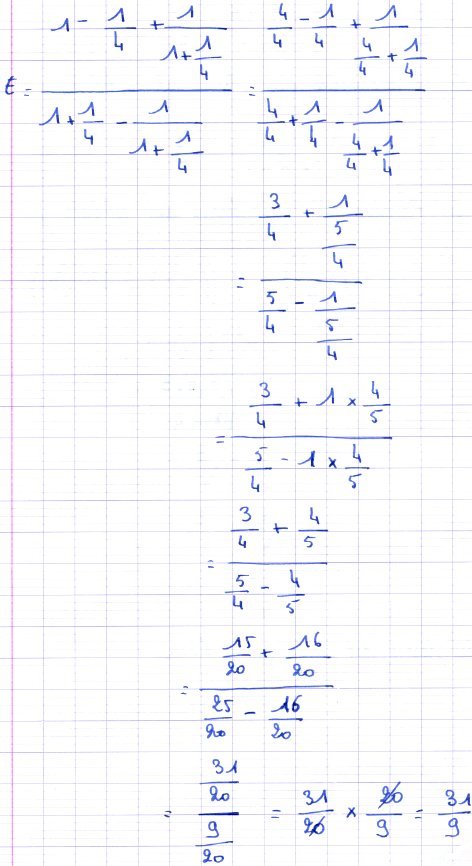 E = (1 - 1/4 + 1/(1 + 1/4)) / (1 + 1/4 - 1/(1 + 1/4)) = (4/4 - 1/4 + 1/(4/4 + 1/4)) / (4/4 + 1/4 - 1/(4/4 + 1/4))
= (3/4 + 1/(5/4)) / (5/4 - 1/(5/4))
= (3/4 + 1 × 4/5) / (5/4 - 1 × 4/5)
= (3/4 + 4/5) / (5/4 - 4/5)
= (15/20 + 16/20) / (25/20 - 16/20)
= (31/20) / (9/20) = 31/20 × 20/9 = 31/9